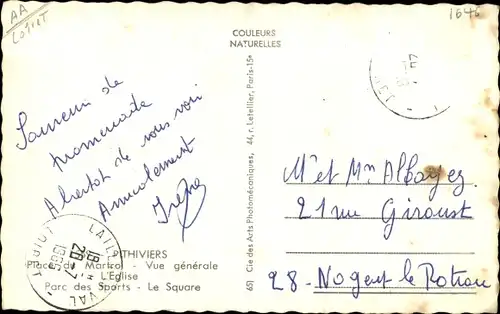 AA
LOIRET
1646
COULEURS
NATURELLES
Souvenir de
promenade
A bientôt de vous voir
Amicalement
Irène
PITHIVIERS
Place du Martroi - Vue générale
L'Eglise
Parc des Sports - Le Square
65) Cie des Arts Photomécaniques, 44, r. Letellier, Paris-15e
Mr et Mm Albayez
21 rue Giroust
28 - Nogent le Rotrou